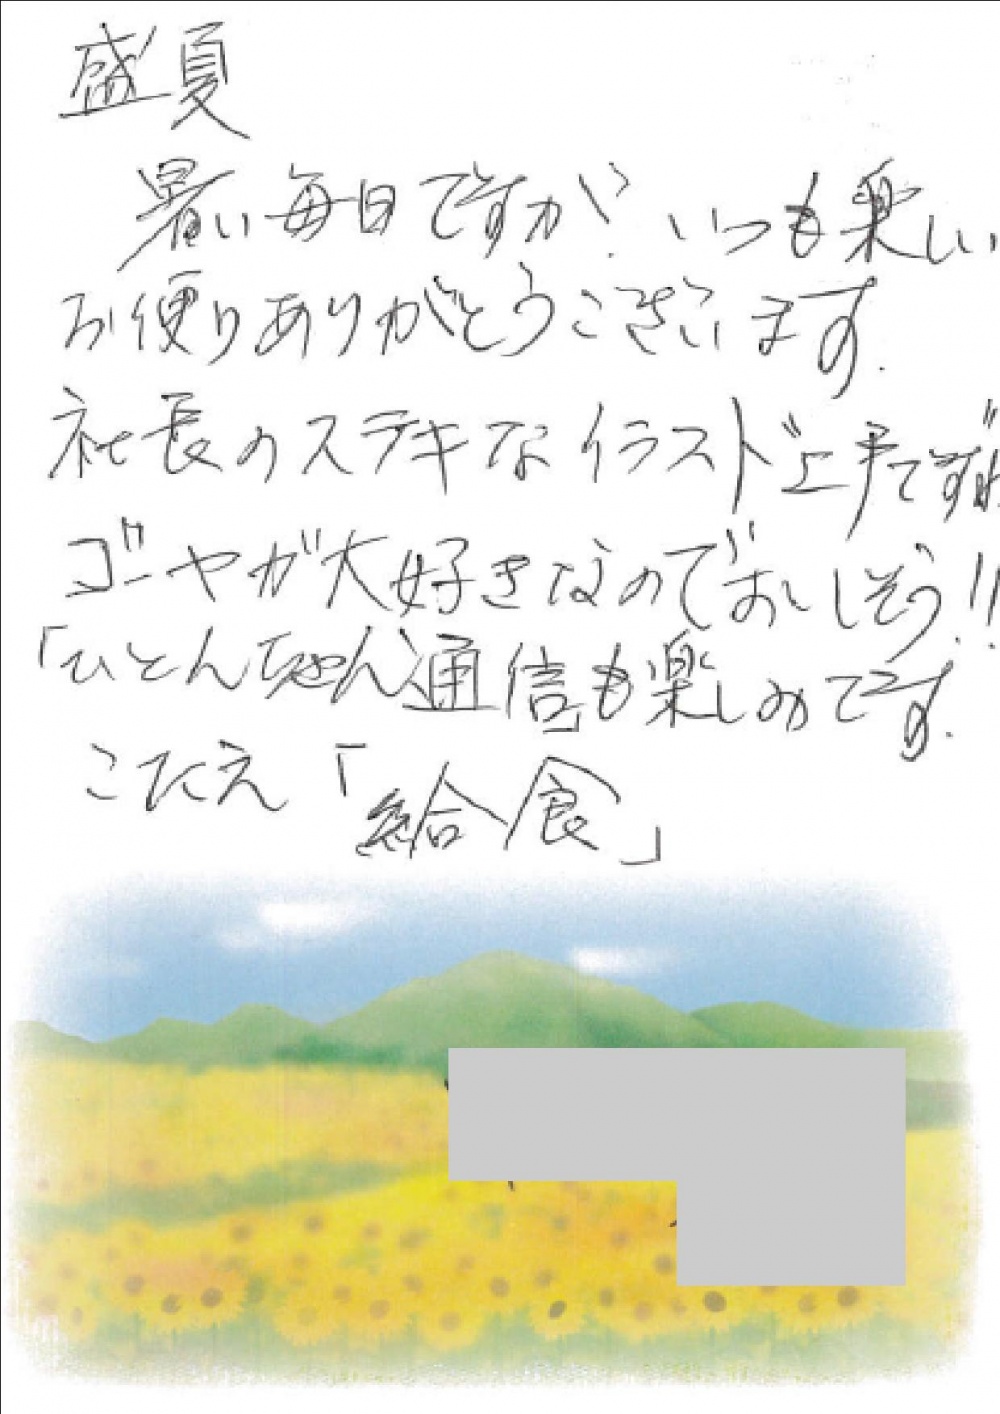 盛夏
暑い毎日ですが、いつも楽しい
お便りありがとうございます.
社長のステキなイラスト上手ですね
ゴーヤが大好きなのでおいしそう!!
「ひとんちゃん通信」も楽しみです.
こたえ「給食」